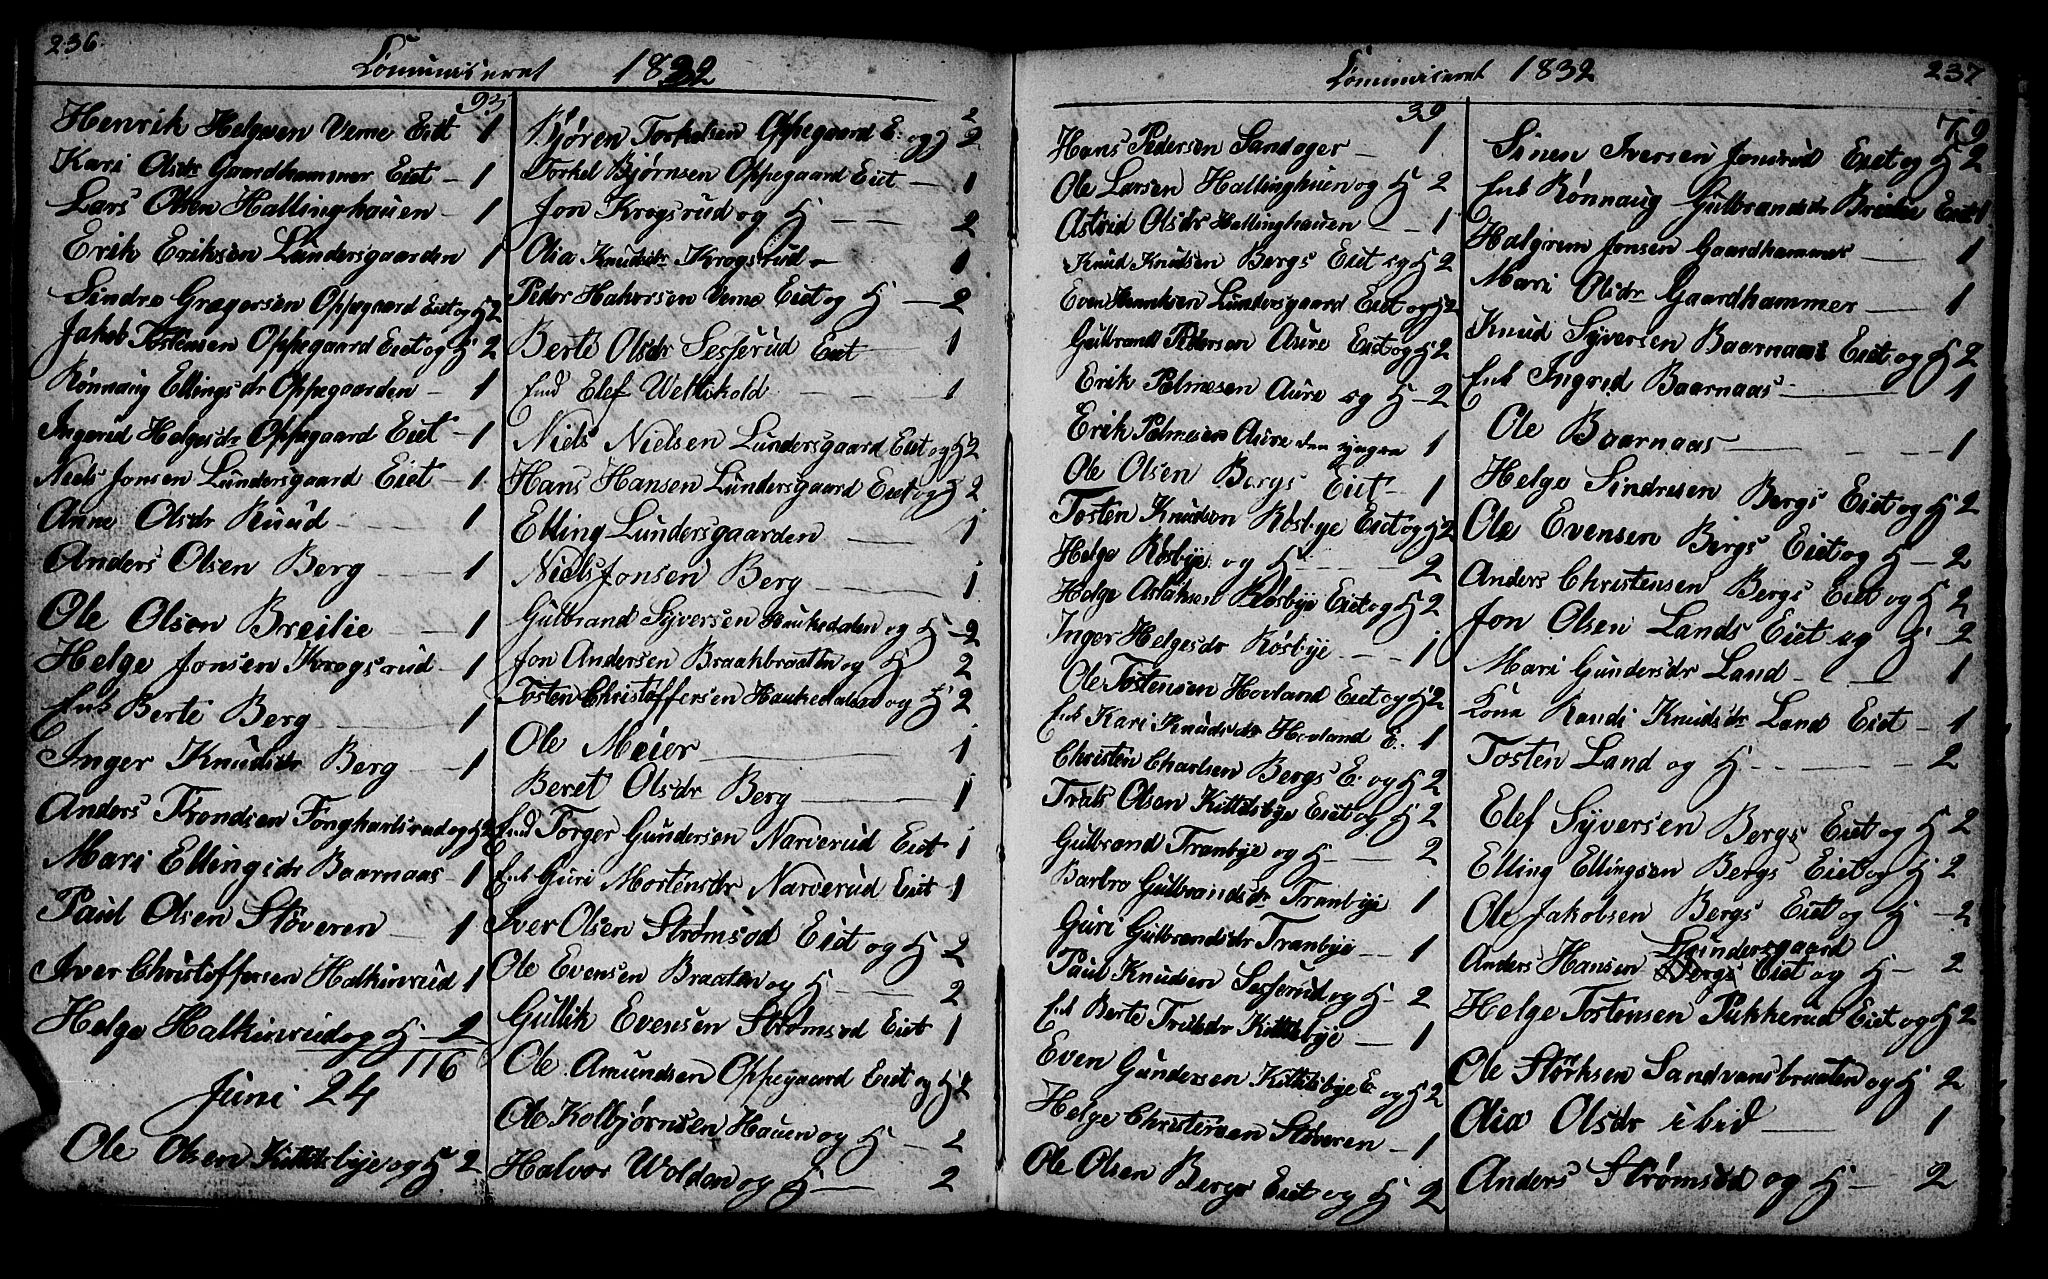 236
Communiceret 1832
93
Henrik Helgesen Verne Eiet 1
Kari Olsdr Gaardhammer Eiet - 1
Lars Olsen Hallinghauen - 1
Erik Eriksen Lundersgaarden 1
Sindre Gregersen Oppegaard Eiet og H 2
Jakob Tostensen Oppegaard Eiet og H 2
Rønnaug Ellingsdr Oppegaarden - 1
Ingerid Helgesdr Oppegaard Eiet - 1
Niels Jonsen Lundersgaard Eiet - 1
Anne Olsdr Ruud - 1
Anders Olsen Berg - 1
Ole Olsen Breilie - 1
Helge Jonsen Krogsrud - 1
Enk Berte Berg - 1
Inger Knudsdr Berg - 1
Anders Trondsen Fongharlsrud og H 2
Mari Ellingsdr Baarnaas - 1
Paul Olsen Støveren - 1
Iver Christoffersen Halkinrud 1
Helge Halkinrud og H - 2
116
Juni 24
Ole Olsen Kittelsbye og H 2
2
Bjøren Torkelsen Oppegaard E. og H 2
Torkel Bjørnsen Oppegaard Eiet - 1
Jon Krogsrud og H - 2
Olia Knudsdr Krogsrud - 1
Peder Halvorsen Verne Eiet og H - 2
Berte Olsdr Sesserud Eiet 1
Enk Elef Weltikold - 1
Niels Nielsen Lundersgaard Eiet og H 2
Hans Hansen Lundersgaard Eiet og H 2
Elling Lundersgaarden - 1
Niels Jonsen Berg - 1
Gulbrand Syversen Haukedalen og H - 2
Jon Andersen Braakbraaten og H 2
Tosten Christoffersen Haukedalen og H 2
Ole Meier - 1
Beret Olsdr Berg - 1
Enk Torger Gundersen Narverud Eiet 1
Enk Guri Mortensdr Narverud Eiet 1
Iver Olsen Strømsod Eiet og H 2
Ole Evensen Braaten og H - 2
Gullik Evensen Strømsod Eiet 1
Ole Amundsen Oppegaard Eiet og H 2
Ole Kolbjørnsen Hauen og H - 2
Halvor Wolden og H - 2
Communiceret 1832 237
39
Hans Pedersen Sandager - 1
Ole Larsen Hallinghuen og H 2
Astrid Olsdr Hallinghauen - 1
Knud Knudsen Bergs Eiet og H 2
Even Lundersgaard Eiet og H 2
Gulbrand Pedersen Aure Eiet og H 2
Erik Palmesen Aure og H - 2
Erik Palmesen Aure den yngre 1
Ole Olsen Bergs Eiet - 1
Tosten Knudsen Røsbye Eiet og H 2
Helge Røsbye og H - 2
Helge Aslaksen Røsbye Eiet og H 2
Inger Helgesdr Røsbye - 1
Ole Tostensen Hovland Eiet og H 2
Enk Kari Knudsdr Hovland E. 1
Christen Charlsen Bergs E. og H 2
Truls Olsen Kittelsbye Eiet og H 2
Gulbrand Tranbye og H - 2
Barbro Gulbrandsdr Tranbye 1
Guri Gulbrandsdr Tranbye - 1
Paul Knudsen Sesserud og H - 2
Enk Berte Trulsdr Kittelsbye - 1
Even Gundersen Kittelsbye E. og H 2
Helge Christensen Støveren - 1
Ole Olsen Bergs Eiet og H 2
79
Simen Iversen Jonsrud Eiet og H 2
Enk Rønnaug Gulbrandsdr Breilie Eiet 1
Halgrim Jonsen Gaardhammer - 1
Mari Olsdr Gaardhammer - 1
Knud Syversen Baarnaas Eiet og H 2
Enk Ingrid Baarnaas - 1
Ole Baarnaas - 1
Helge Sindresen Bergs Eiet og H 2
Ole Evensen Bergs Eiet og H - 2
Anders Christensen Bergs Eiet og H 2
Jon Olsen Lands Eiet og H - 2
Mari Gundersdr Land - 1
Kona Randi Knudsdr Lands Eiet - 1
Tosten Land og H - 2
Elef Syversen Bergs Eiet og H 2
Elling Ellingsen Bergs Eiet og H 2
Ole Jakobsen Bergs Eiet og H - 2
Lundersgaard
Anders Hansen Bergs Eiet og H - 2
Helge Tostensen Pukkerud Eiet og H 2
Ole Størksen Sandvansbraaten og H 2
Olia Olsdr ibid - 1
Anders Strømsod og H - 2